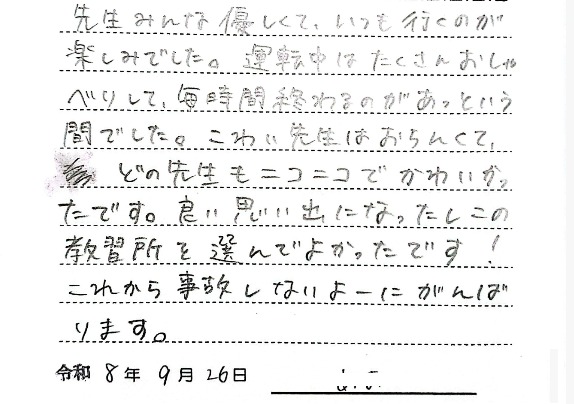 先生みんな優しくて、いつも行くのが
楽しみでした。運転中はたくさんおしゃ
べりして、毎時間終わるのがあっという
間でした。こわい先生はおらんくて、
どの先生もニコニコでかわいかっ
たです。良い思い出になったしこの
教習所を選んでよかったです!
これから事故しないよーにがんば
ります。
令和 8年 9月 26日